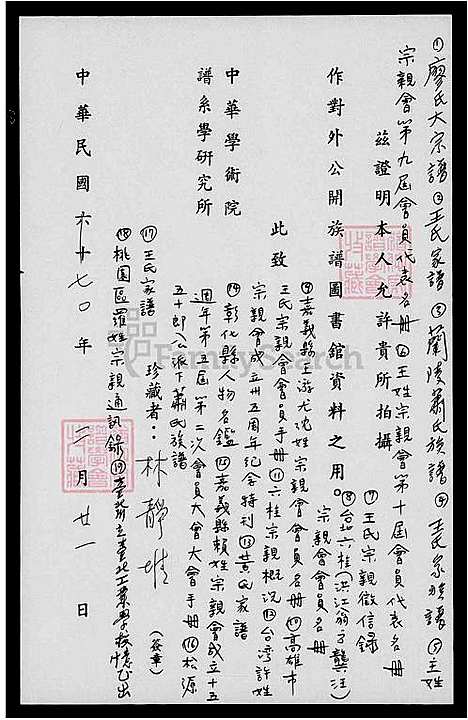 ①廖氏大宗譜②王氏家譜③蘭陵蕭氏族譜④王氏宗族譜⑤王姓
宗親會第九屆會員代表名冊⑥王姓宗親會第十屆會員代表名冊
茲證明本人允許貴所拍攝
⑦王氏宗親徵信錄
作對外公開族譜圖書館資料之用。
⑧台北六桂(洪江翁方龔汪)
宗親會會員名冊
此致
⑨嘉義縣王游尤沈姓宗親會會員名冊⑩高雄市
王氏宗親會會員手冊⑪六桂宗親概況⑫台湾許姓
宗親會成立卅五周年纪念特刊⑬黄氏家譜
中華學術院
⑭彰化縣人物名鑑⑮嘉義縣賴姓宗親會成立十五
譜系學研究所
週年第五屆第二次會員大會大會手冊⑯松源
五十郎公派下蕭氏族譜
珍藏者：林靜堆(簽章)
⑰王氏家譜
⑱桃園區羅姓宗親通訊錄⑲臺灣省立臺北工業學校
中華民國六十七〇年二月廿一日
FamilySearch